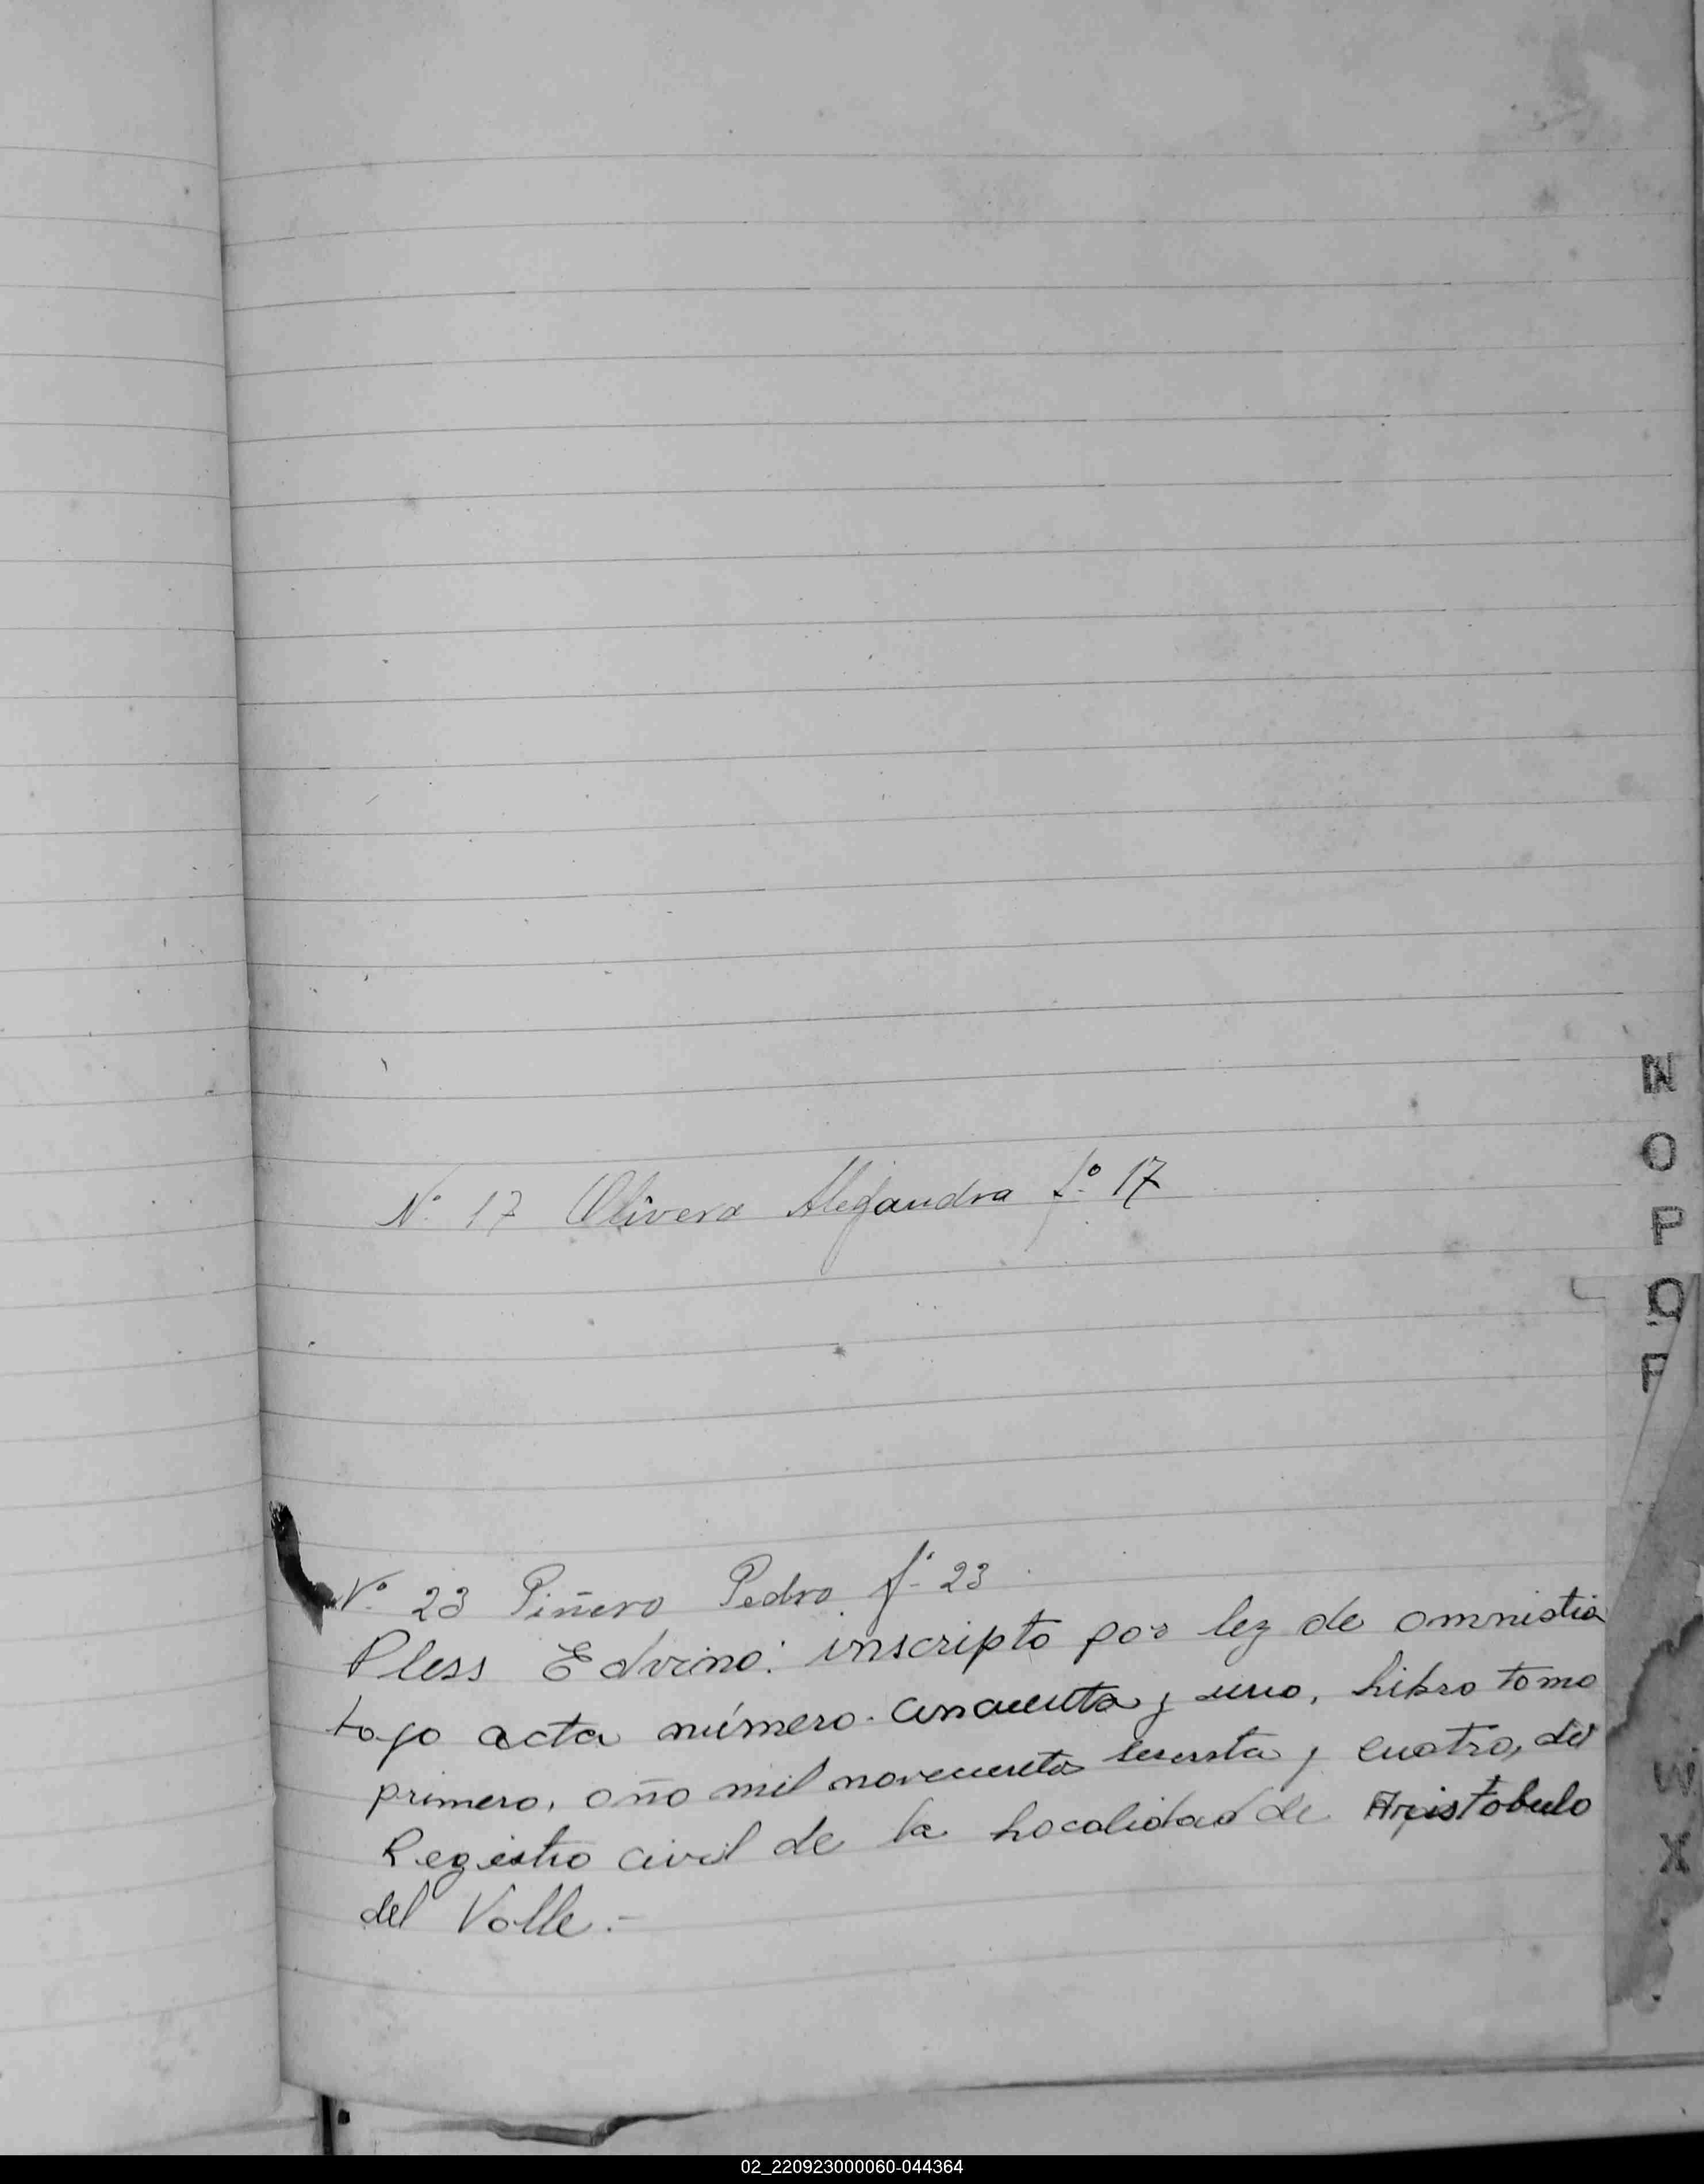 Nº 17 Olivera Alejandra fº 17
Nº 23 Piñero Pedro fº 23
Pless Edvino: inscripto por ley de omnistia
bajo acta número cincuenta y uno, Libro tomo
primero, año mil novecientos sesenta y cuatro, del
Registro civil de la Localidad de Aristobulo
del Valle.-
N
O
P
Q
W
X
02_220923000060-044364